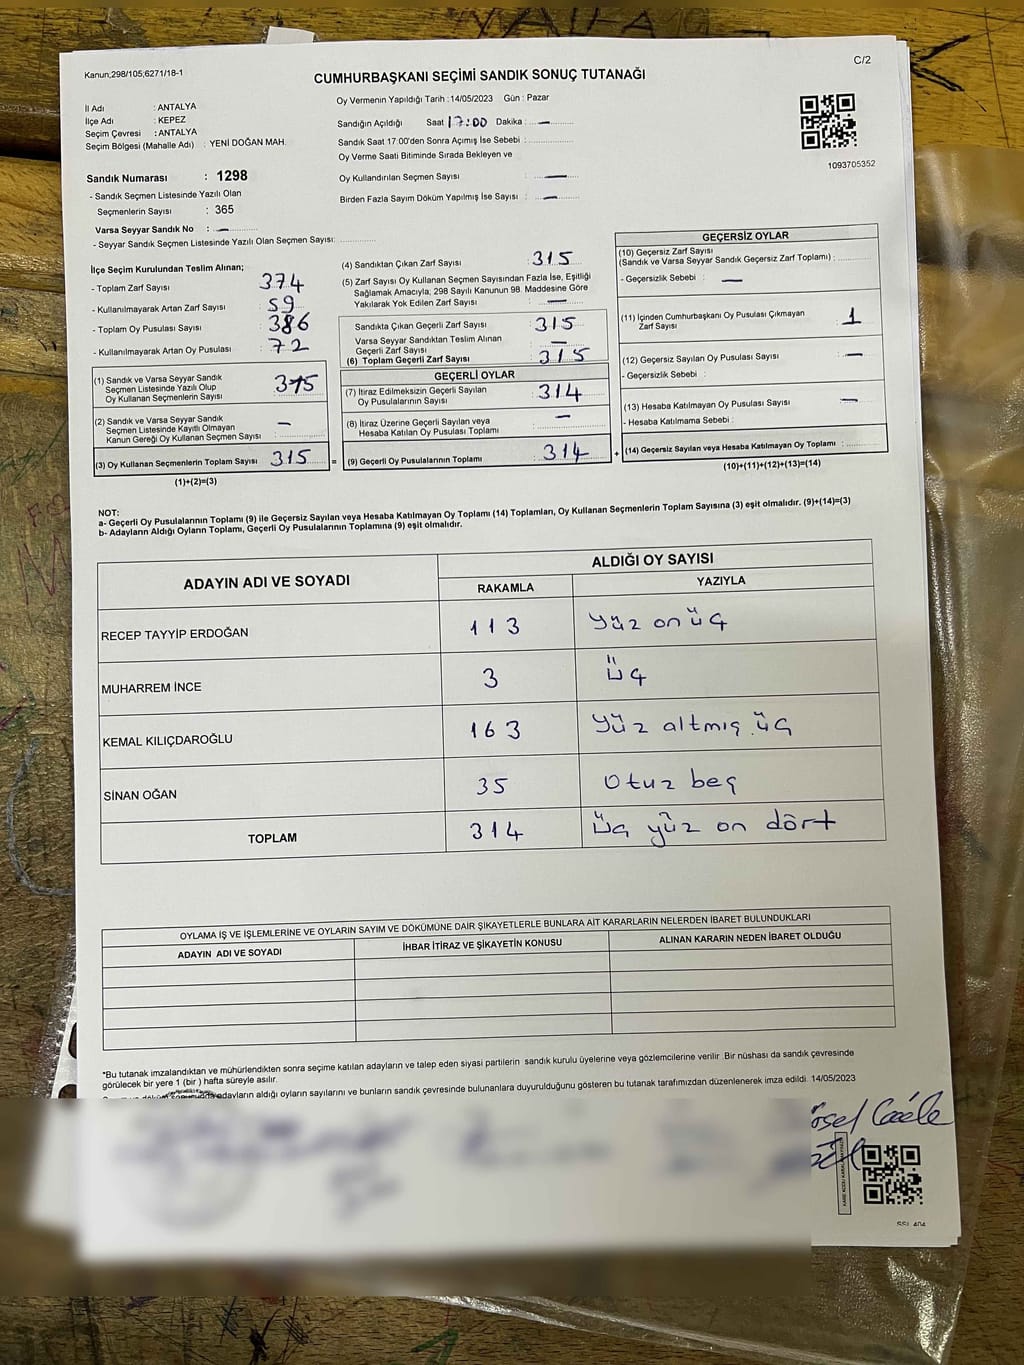 Kanun;298/105;6271/18-1
C/2
CUMHURBAŞKANI SEÇİMİ SANDIK SONUÇ TUTANAĞI
İl Adı : ANTALYA
İlçe Adı : KEPEZ
Seçim Çevresi : ANTALYA
Seçim Bölgesi (Mahalle Adı) : YENİ DOĞAN MAH.
Sandık Numarası : 1298
- Sandık Seçmen Listesinde Yazılı Olan
Seçmenlerin Sayısı : 365
Varsa Seyyar Sandık No : —
- Seyyar Sandık Seçmen Listesinde Yazılı Olan Seçmen Sayısı:
Oy Vermenin Yapıldığı Tarih :14/05/2023 Gün : Pazar
Sandığın Açıldığı Saat 17:00 Dakika : —
Sandık Saat 17:00'den Sonra Açımış İse Sebebi :
Oy Verme Saati Bitiminde Sırada Bekleyen ve
Oy Kullandırılan Seçmen Sayısı : —
Birden Fazla Sayım Döküm Yapılmış İse Sayısı : —
1093705352
İlçe Seçim Kurulundan Teslim Alınan;
- Toplam Zarf Sayısı : 374
- Kullanılmayarak Artan Zarf Sayısı : 59
- Toplam Oy Pusulası Sayısı : 386
- Kullanılmayarak Artan Oy Pusulası : 72
(1) Sandık ve Varsa Seyyar Sandık
Seçmen Listesinde Yazılı Olup
Oy Kullanan Seçmenlerin Sayısı : 315
(2) Sandık ve Varsa Seyyar Sandık
Seçmen Listesinde Kayıtlı Olmayan
Kanun Gereği Oy Kullanan Seçmen Sayısı : —
(3) Oy Kullanan Seçmenlerin Toplam Sayısı : 315 =
(1)+(2)=(3)
(4) Sandıktan Çıkan Zarf Sayısı : 315
(5) Zarf Sayısı Oy Kullanan Seçmen Sayısından Fazla İse, Eşitliği
Sağlamak Amacıyla; 298 Sayılı Kanunun 98. Maddesine Göre
Yakılarak Yok Edilen Zarf Sayısı : —
Sandıkta Çıkan Geçerli Zarf Sayısı : 315
Varsa Seyyar Sandıktan Teslim Alınan
Geçerli Zarf Sayısı : —
(6) Toplam Geçerli Zarf Sayısı : 315
GEÇERLİ OYLAR
(7) İtiraz Edilmeksizin Geçerli Sayılan
Oy Pusulalarının Sayısı : 314
(8) İtiraz Üzerine Geçerli Sayılan veya
Hesaba Katılan Oy Pusulası Toplamı : —
(9) Geçerli Oy Pusulalarının Toplamı : 314 +
GEÇERSİZ OYLAR
(10) Geçersiz Zarf Sayısı
(Sandık ve Varsa Seyyar Sandık Geçersiz Zarf Toplamı) :
- Geçersizlik Sebebi : —
(11) İçinden Cumhurbaşkanı Oy Pusulası Çıkmayan
Zarf Sayısı : 1
(12) Geçersiz Sayılan Oy Pusulası Sayısı : —
- Geçersizlik Sebebi :
(13) Hesaba Katılmayan Oy Pusulası Sayısı : —
- Hesaba Katılmama Sebebi :
(14) Geçersiz Sayılan veya Hesaba Katılmayan Oy Toplamı :
(10)+(11)+(12)+(13)=(14)
NOT:
a- Geçerli Oy Pusulalarının Toplamı (9) ile Geçersiz Sayılan veya Hesaba Katılmayan Oy Toplamı (14) Toplamları, Oy Kullanan Seçmenlerin Toplam Sayısına (3) eşit olmalıdır. (9)+(14)=(3)
b- Adayların Aldığı Oyların Toplamı, Geçerli Oy Pusulalarının Toplamına (9) eşit olmalıdır.
ADAYIN ADI VE SOYADI ALDIĞI OY SAYISI
RAKAMLA YAZIYLA
RECEP TAYYİP ERDOĞAN 113 yüz on üç
MUHARREM İNCE 3 üç
KEMAL KILIÇDAROĞLU 163 yüz altmış üç
SİNAN OĞAN 35 otuz beş
TOPLAM 314 üç yüz on dört
OYLAMA İŞ VE İŞLEMLERİNE VE OYLARIN SAYIM VE DÖKÜMÜNE DAİR ŞİKAYETLERLE BUNLARA AİT KARARLARIN NELERDEN İBARET BULUNDUKLARI
ADAYIN ADI VE SOYADI İHBAR İTİRAZ VE ŞİKAYETİN KONUSU ALINAN KARARIN NEDEN İBARET OLDUĞU
*Bu tutanak imzalandıktan ve mühürlendikten sonra seçime katılan adayların ve talep eden siyasi partilerin sandık kurulu üyelerine veya gözlemcilerine verilir .Bir nüshası da sandık çevresinde
görülecek bir yere 1 (bir ) hafta süreyle asılır.
adayların aldığı oyların sayılarını ve bunların sandık çevresinde bulunanlara duyurulduğunu gösteren bu tutanak tarafımızdan düzenlenerek imza edildi. 14/05/2023